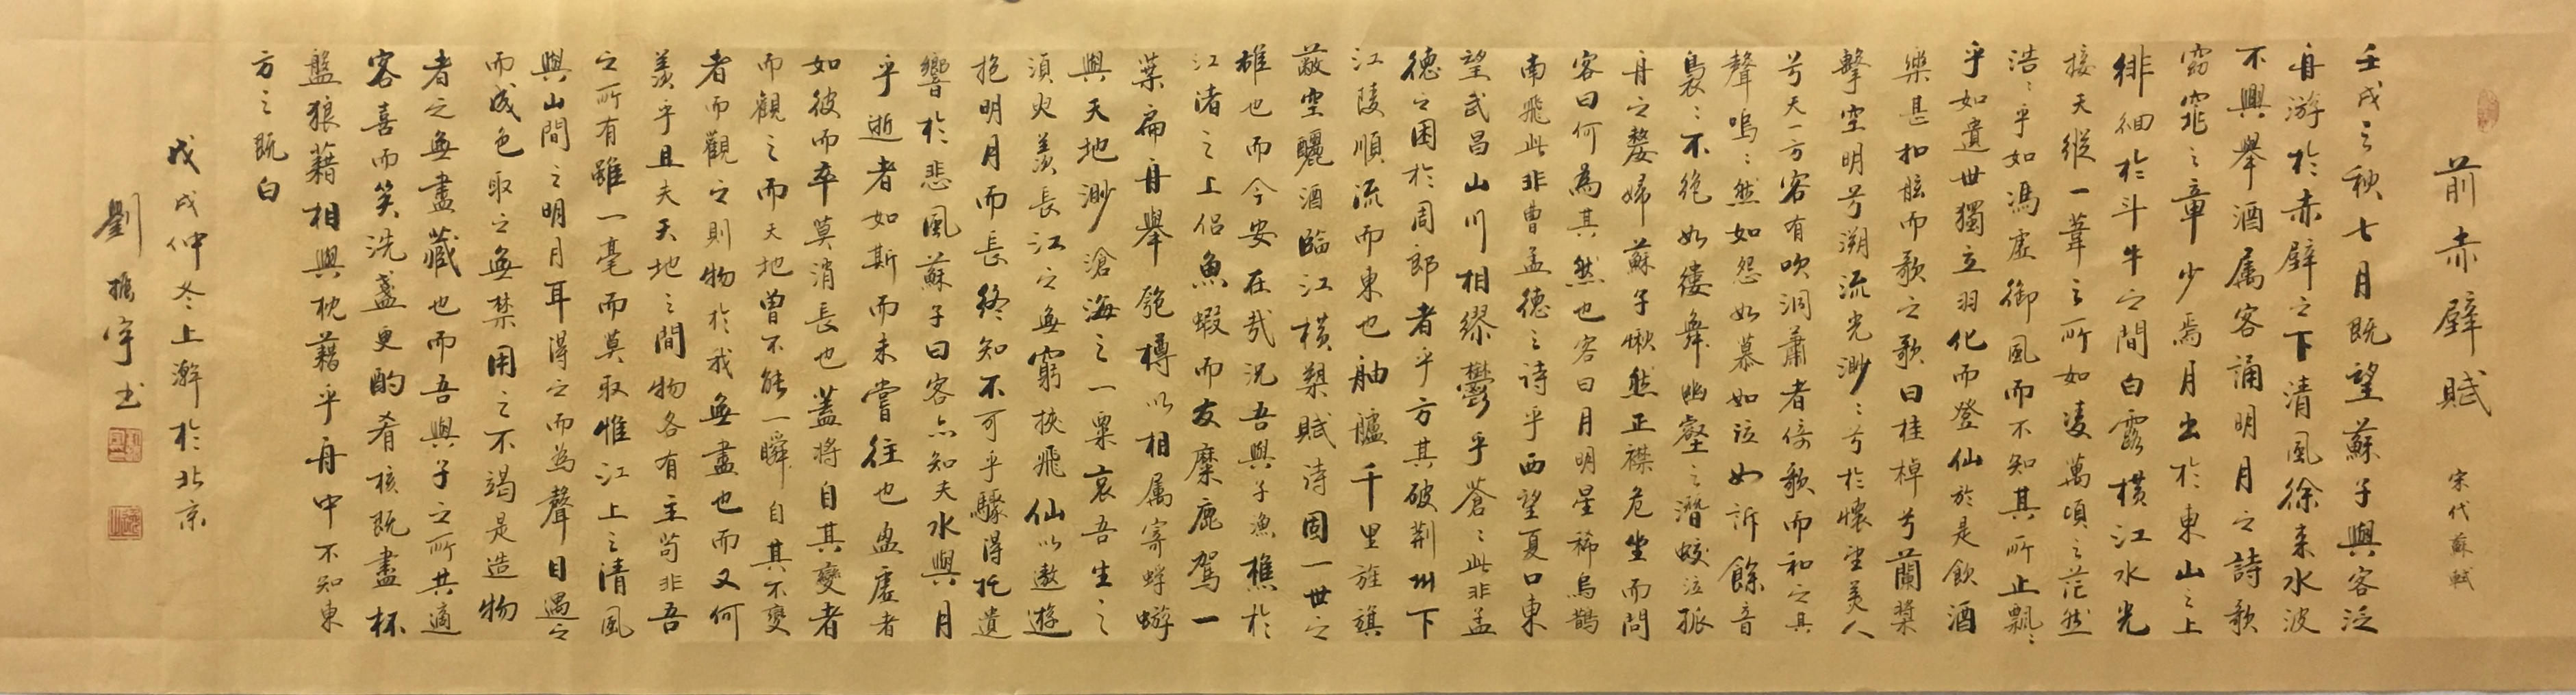 前赤壁賦 宋代蘇軾
壬戌之秋七月既望蘇子與客泛
舟游於赤壁之下清風徐来水波
不興舉酒属客誦明月之詩歌
窈窕之章少焉月出於東山之上
徘徊於斗牛之間白露横江水光
接天縱一葦之所如凌萬頃之茫然
浩〻乎如馮虚御風而不知其所止飄〻
乎如遺世獨立羽化而登仙於是飲酒
樂甚扣舷而歌之歌曰桂棹兮蘭槳
擊空明兮溯流光渺〻兮於懷望美人
兮天一方客有吹洞蕭者倚歌而和之其
聲嗚〻然如怨如慕如泣如訴餘音
裊〻不絶如縷舞幽壑之潛蛟泣孤
舟之嫠婦蘇子愀然正襟危坐而問
客曰何為其然也客曰月明星稀烏鵲
南飛此非曹孟德之诗乎西望夏口東
望武昌山川相繆鬱乎蒼〻此非孟
德之困於周郎者乎方其破荆州下
江陵順流而東也舳艫千里旌旗
蔽空釃酒臨江横槊賦诗固一世之
雄也而今安在哉况吾與子漁樵於
江渚之上侣魚蝦而友麋鹿駕一
葉扁舟舉匏樽以相属寄蜉蝣
與天地渺滄海之一粟哀吾生之
須臾羡長江之無窮挾飛仙以遨遊
抱明月而長終知不可乎驟得托遺
響於悲風蘇子曰客亦知夫水與月
乎逝者如斯而未嘗往也盈虚者
如彼而卒莫消長也蓋將自其變者
而觀之而天地曾不能一瞬自其不變
者而觀之則物於我無盡也而又何
羡乎且夫天地之間物各有主苟非吾
之所有雖一毫而莫取惟江上之清風
與山間之明月耳得之而為聲目遇之
而成色取之無禁用之不竭是造物
者之無盡藏也而吾與子之所共適
客喜而笑洗盞更酌肴核既盡杯
盤狼藉相與枕藉乎舟中不知東
方之既白
戊戌仲冬上澣於北京
劉振宇书